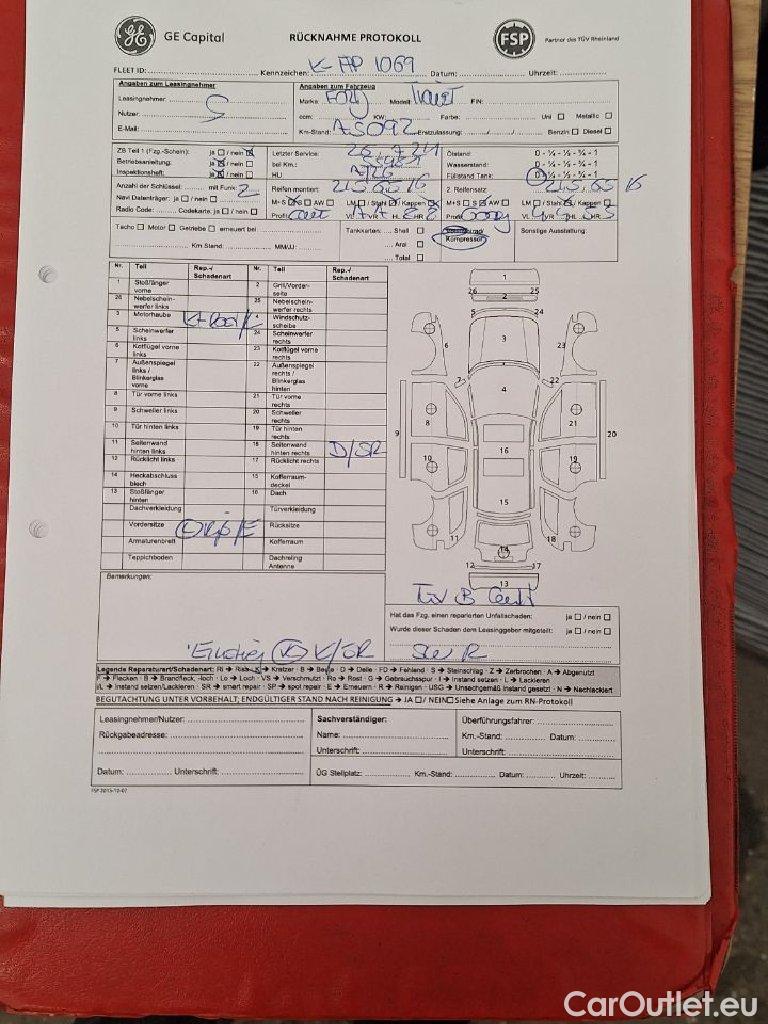 GE Capital
RÜCKNAHME PROTOKOLL
FSP
Partner des TÜV Rheinland
FLEET ID: Kennzeichen: K- AP 1069 Datum: Uhrzeit:
Angaben zum Leasingnehmer
Leasingnehmer:
Nutzer:
E-Mail:
Angaben zum Fahrzeug
Marke Ford Modell FIN:
ccm: KW: Farbe: Uni Metallic
Km-Stand: Erstzulassung: Benzin Diesel
ZB Teil 1 (Fzg.-Schein): ja / nein
Betriebsanleitung: ja / nein
Inspektionsheft: ja / nein
Anzahl der Schlüssel: mit Funk: 2
Navi Datenträger: ja / nein
Radio Code: Codekarte: ja / nein
Letzter Service:
bei Km.:
HU
Reifen montiert: 215 65 16
M+S S AW LM / Stahl / Kappen
Profil VL VR HL HR
Ölstand: 0 - ¼ - ½ - ¾ - 1
Wasserstand: 0 - ¼ - ½ - ¾ - 1
Füllstand Tank: 0 - ¼ - ½ - ¾ - 1
2. Reifensatz 215 65 16
M+S S AW LM / Stahl / Kappen
Profil VL VR HL HR
Tacho Motor Getriebe erneuert bei
Km Stand: MM/JJ:
Tankkarten: Shell
Aral
Total
Kompressor
Sonstige Ausstattung:
Nr. Teil Rep.-/ Schadenart Nr. Teil Rep.-/ Schadenart
1 Stoßfänger vorne
2 Grill/Vorderseite
26 Nebelscheinwerfer links
25 Nebelscheinwerfer rechts
3 Motorhaube
4 Windschutzscheibe
5 Scheinwerfer links
24 Scheinwerfer rechts
6 Kotflügel vorne links
23 Kotflügel vorne rechts
7 Außenspiegel links / Blinkerglas vorne
22 Außenspiegel rechts / Blinkerglas hinten
8 Tür vorne links
21 Tür vorne rechts
9 Schweller links
20 Schweller rechts
10 Tür hinten links
19 Tür hinten rechts
11 Seitenwand hinten links
18 Seitenwand hinten rechts D/SR
12 Rücklicht links
17 Rücklicht rechts
14 Heckabschlussblech
15 Kofferraumdeckel
13 Stoßfänger hinten
16 Dach
Dachverkleidung
Türverkleidung
Vordersitze
Rücksitze
Armaturenbrett
Kofferraum
Teppichboden
Dachreling
Antenne
1
26 25
2
5 24
3
6 23
7 22
4
8 21
9 20
16
10 19
15
11 18
14
12 17
13
Bemerkungen:
Hat das Fzg. einen reparierten Unfallschaden: ja / nein
Wurde dieser Schaden dem Leasinggeber mitgeteilt: ja / nein
Legende Reparaturart/Schadenart: Ri → Riss · K → Kratzer · B → Beule · D → Delle · FD → Fehlend · S → Steinschlag · Z → Zerbrochen · A → Abgenutzt
F → Flecken · B → Brandfleck, -loch · Lo → Loch · VS → Verschmutzt · Ro → Rost · G → Gebrauchsspur · I → Instand setzen · L → Lackieren
I/L → Instand setzen/Lackieren · SR → smart repair · SP → spot repair · E → Erneuern · R → Reinigen · USG → Unsachgemäß instand gesetzt · N → Nachlackiert
BEGUTACHTUNG UNTER VORBEHALT; ENDGÜLTIGER STAND NACH REINIGUNG → JA / NEIN Siehe Anlage zum RN-Protokoll
Leasingnehmer/Nutzer:
Rückgabeadresse:
Datum: Unterschrift:
Sachverständiger:
Name:
Unterschrift:
Überführungsfahrer:
Km.-Stand: Datum:
Unterschrift:
ÜG Stellplatz: Km.-Stand: Datum: Uhrzeit:
CarOutlet.eu